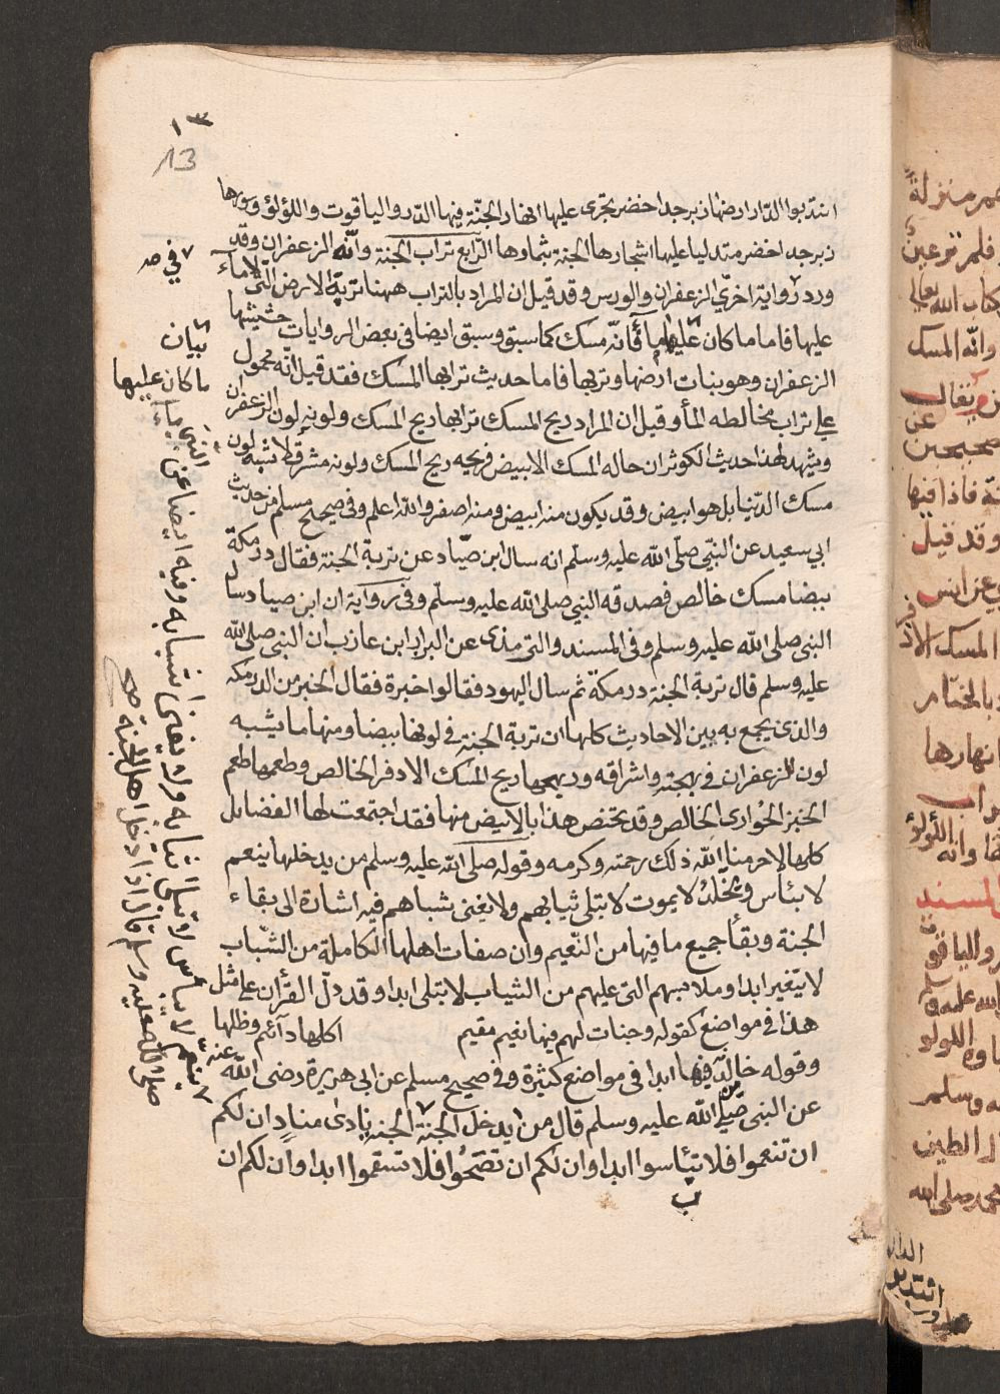 ١٣
13
انتدبوا الدار ارضها زبرجد اخضر تجرى عليها انهار الجنة فيها الدر والياقوت واللؤلؤ وسورها
زبرجد اخضر متدليا عليها اشجارها الجنة بثمارها الرابع تراب الجنة وأنه الزعفران وقد
ورد رواية اخرى الزعفران والورس وقد قيل ان المراد بالتراب ههنا تربة الارض التى لا ماء
عليها فاما ما كان عليها ماء فانه مسك كما سبق وسبق ايضا فى بعض الروايات حشيشها
الزعفران وهو نبات ارضها وتربها فاما حديث ترابها المسك فقد قيل انه محمول
على تراب مخالطه الماء وقيل ان المراد ريح المسك ترابها ريح المسك ولونه لون الزعفران
ويشهد لهذا حديث الكوثر ان حاله المسك الابيض فريحه ريح المسك ولونه مشرق لا يشبه لون
مسك الدنيا بل هو ابيض وقد يكون منه ابيض ومنه اصفر والله اعلم وفى صحيح مسلم من حديث
ابي سعيد عن النبى صلى الله عليه وسلم انه سال ابن صياد عن تربة الجنة فقال درمكة
بيضا مسك خالص فصدقه النبي صلى الله عليه وسلم وفى رواية ان ابن صياد سال
النبى صلى الله عليه وسلم وفى المسند والترمذى عن البرا ابن عازب ان النبى صلى الله
عليه وسلم قال تربة الجنة درمكة ثم سال اليهود فقالوا خبزة فقال الخبز من الدرمك
والذى يجمع به بين الاحاديث كلها ان تربة الجنة فى لونها بيضا ومنها ما يشبه
لون الزعفران فى بهجته واشراقه وريحها ريح المسك الاذفر الخالص وطعمها طعم
الخبز الحوارى الخالص وقد يختص هذا بالابيض منها فقد اجتمعت لها الفضايل
كلها لاحرمنا الله ذلك رحمته وكرمه وقوله صلى الله عليه وسلم من يدخلها ينعم
لا يبئاس ويخلد لا يموت لا تبلى ثيابهم ولا يفنى شبابهم فيه اشارة الى بقاء
الجنة وبقاء جميع ما فيها من النعيم وان صفات اهلها الكاملة من الشباب
لا يتغير ابدا وملابسهم التى عليهم من الثياب لا تبلى ابدا وقد دل القرأن على مثل
هذا فى مواضع كقوله وجنات لهم فيها نعيم مقيم اكلها دائم وظلها
وقوله خالدين فيها ابدا فى مواضع كثيرة وفى صحيح مسلم عن ابى هريرة رضى الله عنه
عن النبى صلى الله عليه وسلم قال من يدخل الجنة الجنة ينادى مناد ان لكم
ان تنعموا فلا تبئاسوا ابدا وان لكم ان تصحوا فلا تسقموا ابدا وان لكم ان
فى
بيان
ما كان عليها
ينعم لا يبأس لا تبلى ثيابه ولا يفنى شبابه وفيه ايضا عن
صلى الله عليه وسلم قال اذا دخل اهل الجنة صح